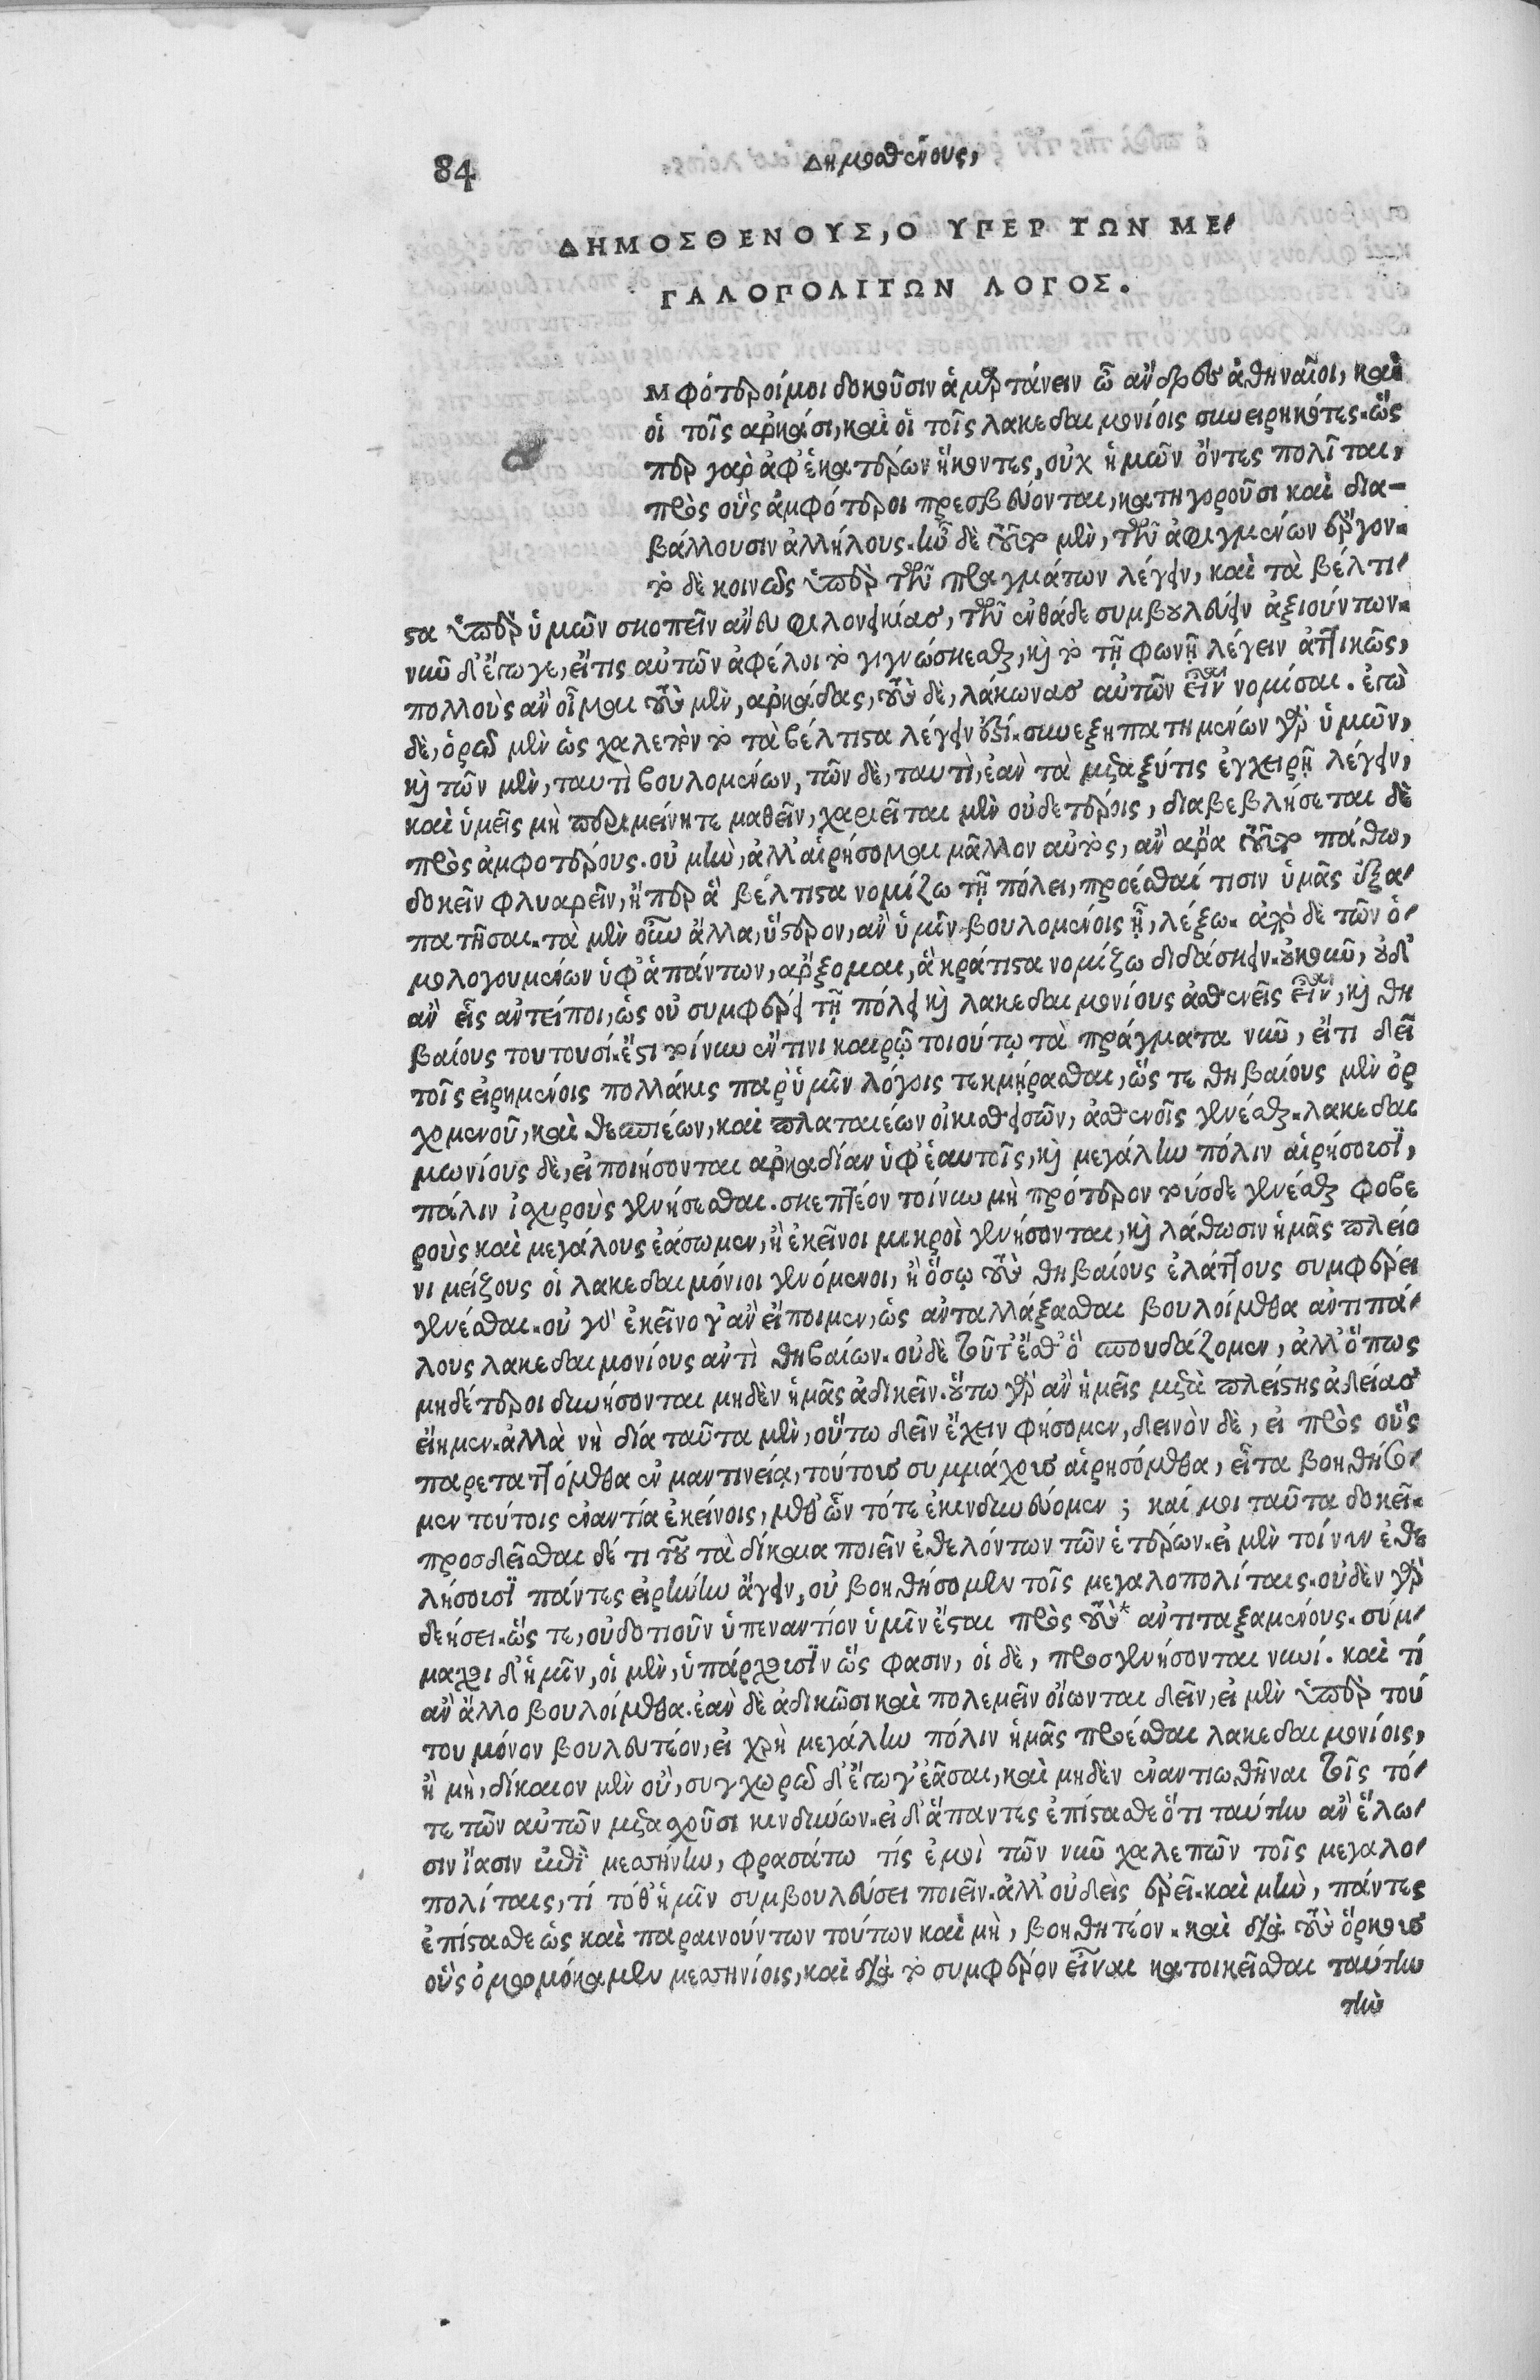 84 Δημοσθένους,
ΔΗΜΟΣΘΕΝΟΥΣ, Ο ΥΠΕΡ ΤΩΝ ΜΕ-
ΓΑΛΟΠΟΛΙΤΩΝ ΛΟΓΟΣ.
Μφότεροί μοι δοκοῦσιν ἁμαρτάνειν ὦ ἄνδρες ἀθηναῖοι, καὶ
οἱ τοῖς ἀρκάσι, καὶ οἱ τοῖς λακεδαιμονίοις συνειρηκότες. ὥς
περ γὰρ ἀφ' ἑκατέρων ἥκοντες, οὐχ ἡμῶν ὄντες πολῖται,
πρὸς οὓς ἀμφότεροι πρεσβεύονται, κατηγοροῦσι καὶ δια-
βάλλουσιν ἀλλήλους. ἦν δὲ τοῦτο μὲν, τῶν ἀφιγμένων ἔργον.
τὸ δὲ κοινῶς ὑπὲρ τῶν πραγμάτων λέγειν, καὶ τὰ βέλτι-
στα ὑπὲρ ὑμῶν σκοπεῖν ἄνευ φιλονεικίας, τῶν ἐνθάδε συμβουλεύειν ἀξιούντων.
νῦν δ' ἔγωγε, εἴ τις αὐτῶν ἀφέλοι τὸ γιγνώσκεσθαι, καὶ τὸ τῇ φωνῇ λέγειν ἀττικῶς,
πολλοὺς ἂν οἶμαι τοὺς μὲν, ἀρκάδας, τοὺς δὲ, λάκωνας αὐτῶν εἶναι νομίσαι. ἐγὼ
δὲ, ὁρῶ μὲν ὡς χαλεπὸν τὸ τὰ βέλτιστα λέγειν ἐστί. συνεξηπατημένων γὰρ ὑμῶν,
καὶ τῶν μὲν, ταυτὶ βουλομένων, τῶν δὲ, ταυτὶ, ἐὰν τὰ μεταξύ τις ἐγχειρῇ λέγειν,
καὶ ὑμεῖς μὴ περιμείνητε μαθεῖν, χαριεῖται μὲν οὐδετέροις, διαβεβλήσεται δὲ
πρὸς ἀμφοτέρους. οὐ μὴν, ἀλλ' αἱρήσομαι μᾶλλον αὐτὸς, ἂν ἄρα τοῦτο πάθω,
δοκεῖν φλυαρεῖν, ἤπερ ἃ βέλτιστα νομίζω τῇ πόλει, προέσθαι τισὶν ὑμᾶς ἐξα-
πατῆσαι. τὰ μὲν οὖν ἄλλα, ὕστερον, ἂν ὑμῖν βουλομένοις ᾖ, λέξω. ἀπὸ δὲ τῶν ὁ-
μολογουμένων ὑφ' ἁπάντων, ἄρξομαι, ἃ κράτιστα νομίζω διδάσκειν. οὐκοῦν, οὐδ'
ἂν εἷς ἀντείποι, ὡς οὐ συμφέρει τῇ πόλει καὶ λακεδαιμονίους ἀσθενεῖς εἶναι, καὶ θη
βαίους τουτουσί. ἔστι τοίνυν ἔν τινι καιρῷ τοιούτῳ τὰ πράγματα νῦν, εἴ τι δεῖ
τοῖς εἰρημένοις πολλάκις παρ' ὑμῖν λόγοις τεκμήρασθαι, ὥς τε θηβαίους μὲν ὀρ
χομενοῦ, καὶ θεσπιέων, καὶ πλαταιέων οἰκισθεισῶν, ἀσθενεῖς γενέσθαι. λακεδαι
μονίους δὲ, εἰ ποιήσονται ἀρκαδίαν ὑφ' ἑαυτοῖς, καὶ μεγάλην πόλιν αἱρήσουσι,
πάλιν ἰσχυροὺς γενήσεσθαι. σκεπτέον τοίνυν μὴ πρότερον τούσδε γενέσθαι φοβε
ροὺς καὶ μεγάλους ἐάσωμεν, ἢ ἐκεῖνοι μικροὶ γενήσονται, καὶ λάθωσιν ἡμᾶς πλείο
νι μείζους οἱ λακεδαιμόνιοι γενόμενοι, ἢ ὅσῳ τοὺς θηβαίους ἐλάττους συμφέρει
γενέσθαι. οὐ γὰρ ἐκεῖνο γ' ἂν εἴποιμεν, ὡς ἀνταλλάξασθαι βουλοίμεθα ἀντιπά-
λους λακεδαιμονίους ἀντὶ θηβαίων. οὐδὲ τοῦτ' ἔσθ' ὃ σπουδάζομεν, ἀλλ' ὅπως
μηδέτεροι δυνήσονται μηδὲν ἡμᾶς ἀδικεῖν. οὕτω γὰρ ἂν ἡμεῖς μετὰ πλείστης ἀδείας
εἴημεν. ἀλλὰ νὴ δία ταῦτα μὲν, οὕτω δεῖν ἔχειν φήσομεν, δεινὸν δὲ, εἰ πρὸς οὓς
παρεταττόμεθα ἐν μαντινείᾳ, τούτους συμμάχους αἱρησόμεθα, εἶτα βοηθήσο-
μεν τούτοις ἐναντία ἐκείνοις, μεθ' ὧν τότε ἐκινδυνεύομεν; καί μοι ταῦτα δοκεῖ.
προσδεῖσθαι δέ τι τοῦ τὰ δίκαια ποιεῖν ἐθελόντων τῶν ἑτέρων. εἰ μὲν τοίνυν ἐθε
λήσουσι πάντες εἰρήνην ἄγειν, οὐ βοηθήσομεν τοῖς μεγαλοπολίταις. οὐδὲν γὰρ
δεήσει. ὥς τε, οὐδοτιοῦν ὑπεναντίον ὑμῖν ἔσται πρὸς τοὺς* ἀντιταξαμένους. σύμ-
μαχοι δ' ἡμῖν, οἱ μὲν, ὑπάρχουσιν ὥς φασιν, οἱ δὲ, προσγενήσονται νυνί. καὶ τί
ἂν ἄλλο βουλοίμεθα. ἐὰν δὲ ἀδικῶσι καὶ πολεμεῖν οἴωνται δεῖν, εἰ μὲν ὑπὲρ τού
του μόνον βουλευτέον, εἰ χρὴ μεγάλην πόλιν ἡμᾶς προέσθαι λακεδαιμονίοις,
ἢ μὴ, δίκαιον μὲν οὐ, συγχωρῶ δ' ἔγωγ' ἐᾶσαι, καὶ μηδὲν ἐναντιωθῆναι τοῖς τό-
τε τῶν αὐτῶν μετασχοῦσι κινδύνων. εἰ δ' ἅπαντες ἐπίστασθε ὅτι ταύτην ἂν ἕλω-
σιν ἴασιν ἐπὶ μεσήνην, φρασάτω τίς ἐμοὶ τῶν νῦν χαλεπῶν τοῖς μεγαλο-
πολίταις, τί τόθ' ἡμῖν συμβουλεύσει ποιεῖν. ἀλλ' οὐδεὶς ἐρεῖ. καὶ μὴν, πάντες
ἐπίστασθε ὡς καὶ παραινούντων τούτων καὶ μὴ, βοηθητέον. καὶ διὰ τοὺς ὅρκους
οὓς ὀμωμόκαμεν μεσηνίοις, καὶ διὰ τὸ συμφέρον εἶναι κατοικεῖσθαι ταύτην
τὴν